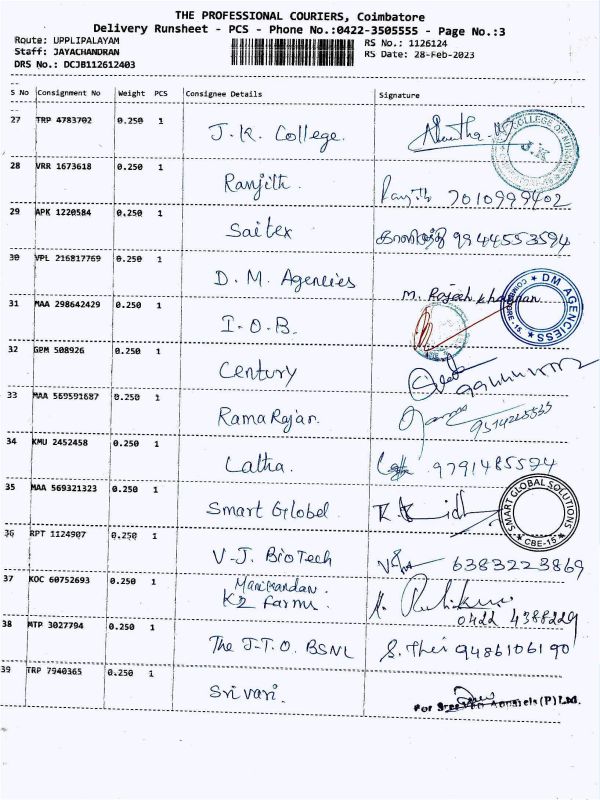 THE PROFESSIONAL COURIERS, Coimbatore
Delivery Runsheet - PCS - Phone No.:0422-3505555 - Page No.:3
Route: UPPLIPALAYAM
RS No.: 1126124
Staff: JAYACHANDRAN
RS Date: 28-Feb-2023
DRS No.: DCJB112612403
S No Consignment No Weight PCS Consignee Details Signature
27 TRP 4783702 0.250 1
J.K. College.
J.K
28 VRR 1673618 0.250 1
Ranjith. Ranjith 7010999402
29 APK 1220584 0.250 1
Saitex 9944553594
30 VPL 216817769 0.250 1
D.M. Agencies M. Rajesh
DM AGENCIESS
31 MAA 298642429 0.250 1
I.O.B.
32 GPM 508926 0.250 1
Century
33 MAA 569591687 0.250 1
Rama Rajan.
34 KMU 2452458 0.250 1
Latha. 9791485594
35 MAA 569321323 0.250 1
Smart Globel
SMART GLOBAL SOLUTIONS
CBE-15
36 RPT 1124907 0.250 1
V-J. BioTech 6383223869
37 KOC 60752693 0.250 1
Manikandan.
K2 Farms.
0422 4388229
38 MTP 3027794 0.250 1
The J-T.O. BSNL 9486106190
39 TRP 7940365 0.250 1
Srivari.
For (P) Ltd.